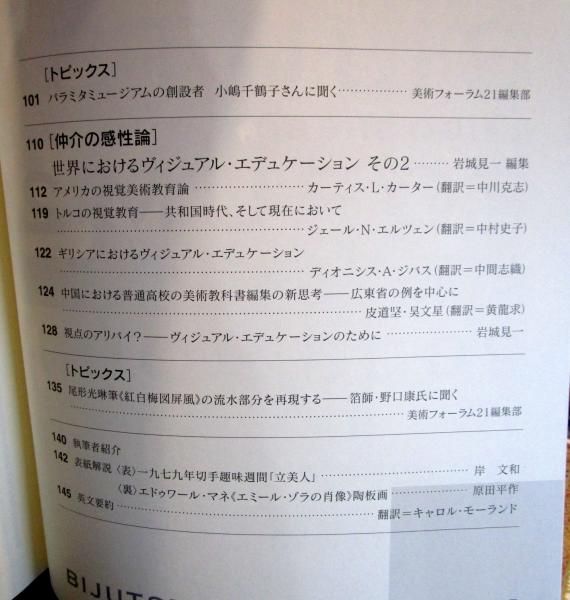 ［トピックス］
101 パラミタミュージアムの創設者　小嶋千鶴子さんに聞く……………… 美術フォーラム21編集部
110 ［仲介の感性論］
世界におけるヴィジュアル・エデュケーション その2 ……… 岩城見一 編集
112 アメリカの視覚美術教育論 ………………………… カーティス・L・カーター(翻訳＝中川克志)
119 トルコの視覚教育——共和国時代、そして現在において
………………………………………………………… ジェール・N・エルツェン(翻訳＝中村史子)
122 ギリシアにおけるヴィジュアル・エデュケーション
………………………………………………………… ディオニシス・A・ジバス(翻訳＝中間志織)
124 中国における普通高校の美術教科書編集の新思考——広東省の例を中心に
……………………………………………………………………… 皮道堅・吴文星(翻訳＝黄龍求)
128 視点のアリバイ？——ヴィジュアル・エデュケーションのために ………………… 岩城見一
［トピックス］
135 尾形光琳筆《紅白梅図屏風》の流水部分を再現する——箔師・野口康氏に聞く
……………………………………………………………………………… 美術フォーラム21編集部
140 執筆者紹介
142 表紙解説 〈表〉一九七九年切手趣味週間「立美人」……………………………… 岸　文和
〈裏〉エドゥワール・マネ《エミール・ゾラの肖像》陶板画 ……………… 原田平作
145 英文要約 ……………………………………………………… 翻訳＝キャロル・モーランド